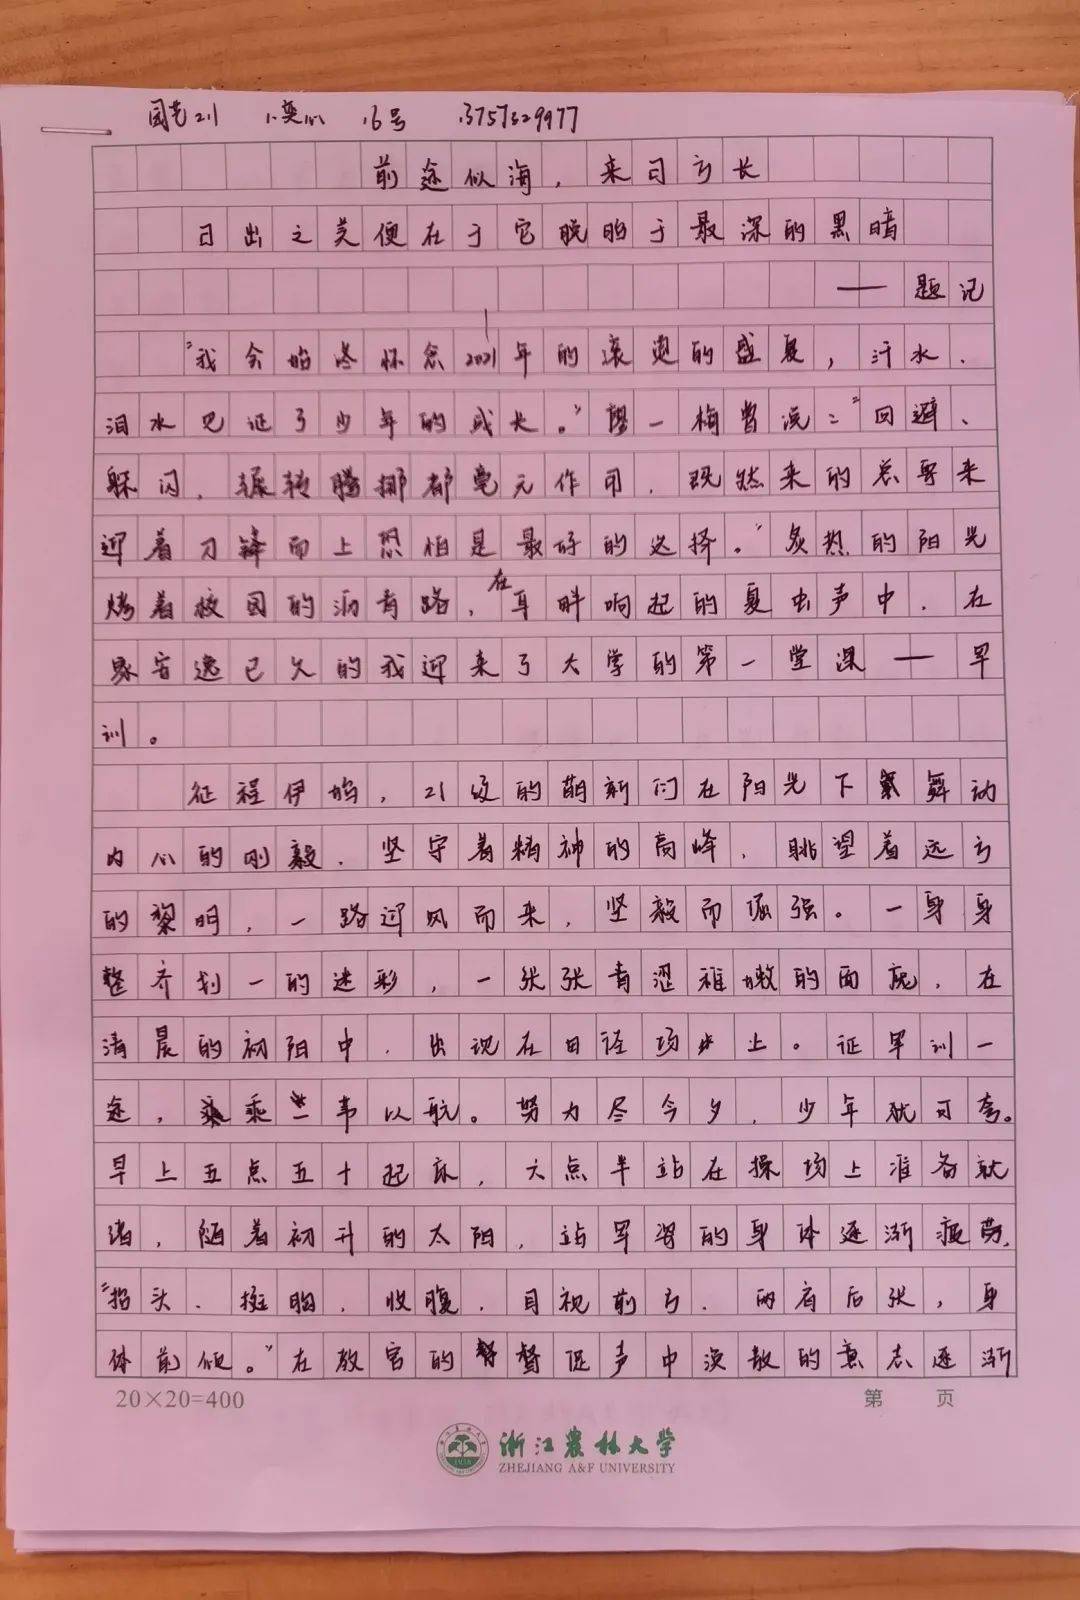 园艺211 16号 13757329977
前途似海，来日方长
日出之美便在于它脱胎于最深的黑暗
——题记
“我会始终怀念2021年的滚烫的盛夏，汗水、
泪水见证了少年的成长。”塱一梅曾说：“回避、
躲闪，辗转腾挪都毫无作用，既然来的总要来
迎着刀锋而上恐怕是最好的选择。”炙热的阳光
烤着校园的沥青路，在耳畔响起的夏虫声中，在
家安逸已久的我迎来了大学的第一堂课——军
训。
征程伊始，21级的萌新们在阳光下舞动
内心的刚毅，坚守着精神的高峰，眺望着远方
的黎明，一路迎风而来，坚毅而倔强。一身身
整齐划一的迷彩，一张张青涩稚嫩的面庞，在
清晨的初阳中，出现在田径场上。证军训一
途，乘一苇以航。努力尽今夕，少年犹可夸。
早上五点五十起床，六点半站在操场上准备就
绪，随着初升的太阳，站军姿的身体逐渐疲劳，
“抬头、挺胸，收腹，目视前方，两肩后张，身
体前倾。”在教官的督促声中涣散的意志逐渐
20×20=400 第 页
浙江农林大学
ZHEJIANG A&F UNIVERSITY